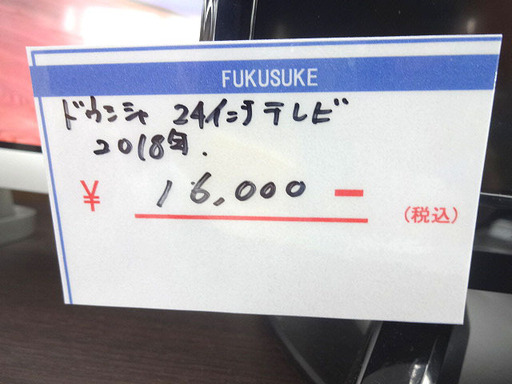 FUKUSUKE
ドウシシャ 24インチテレビ
2018年.
¥ 16,000 -
(税込)